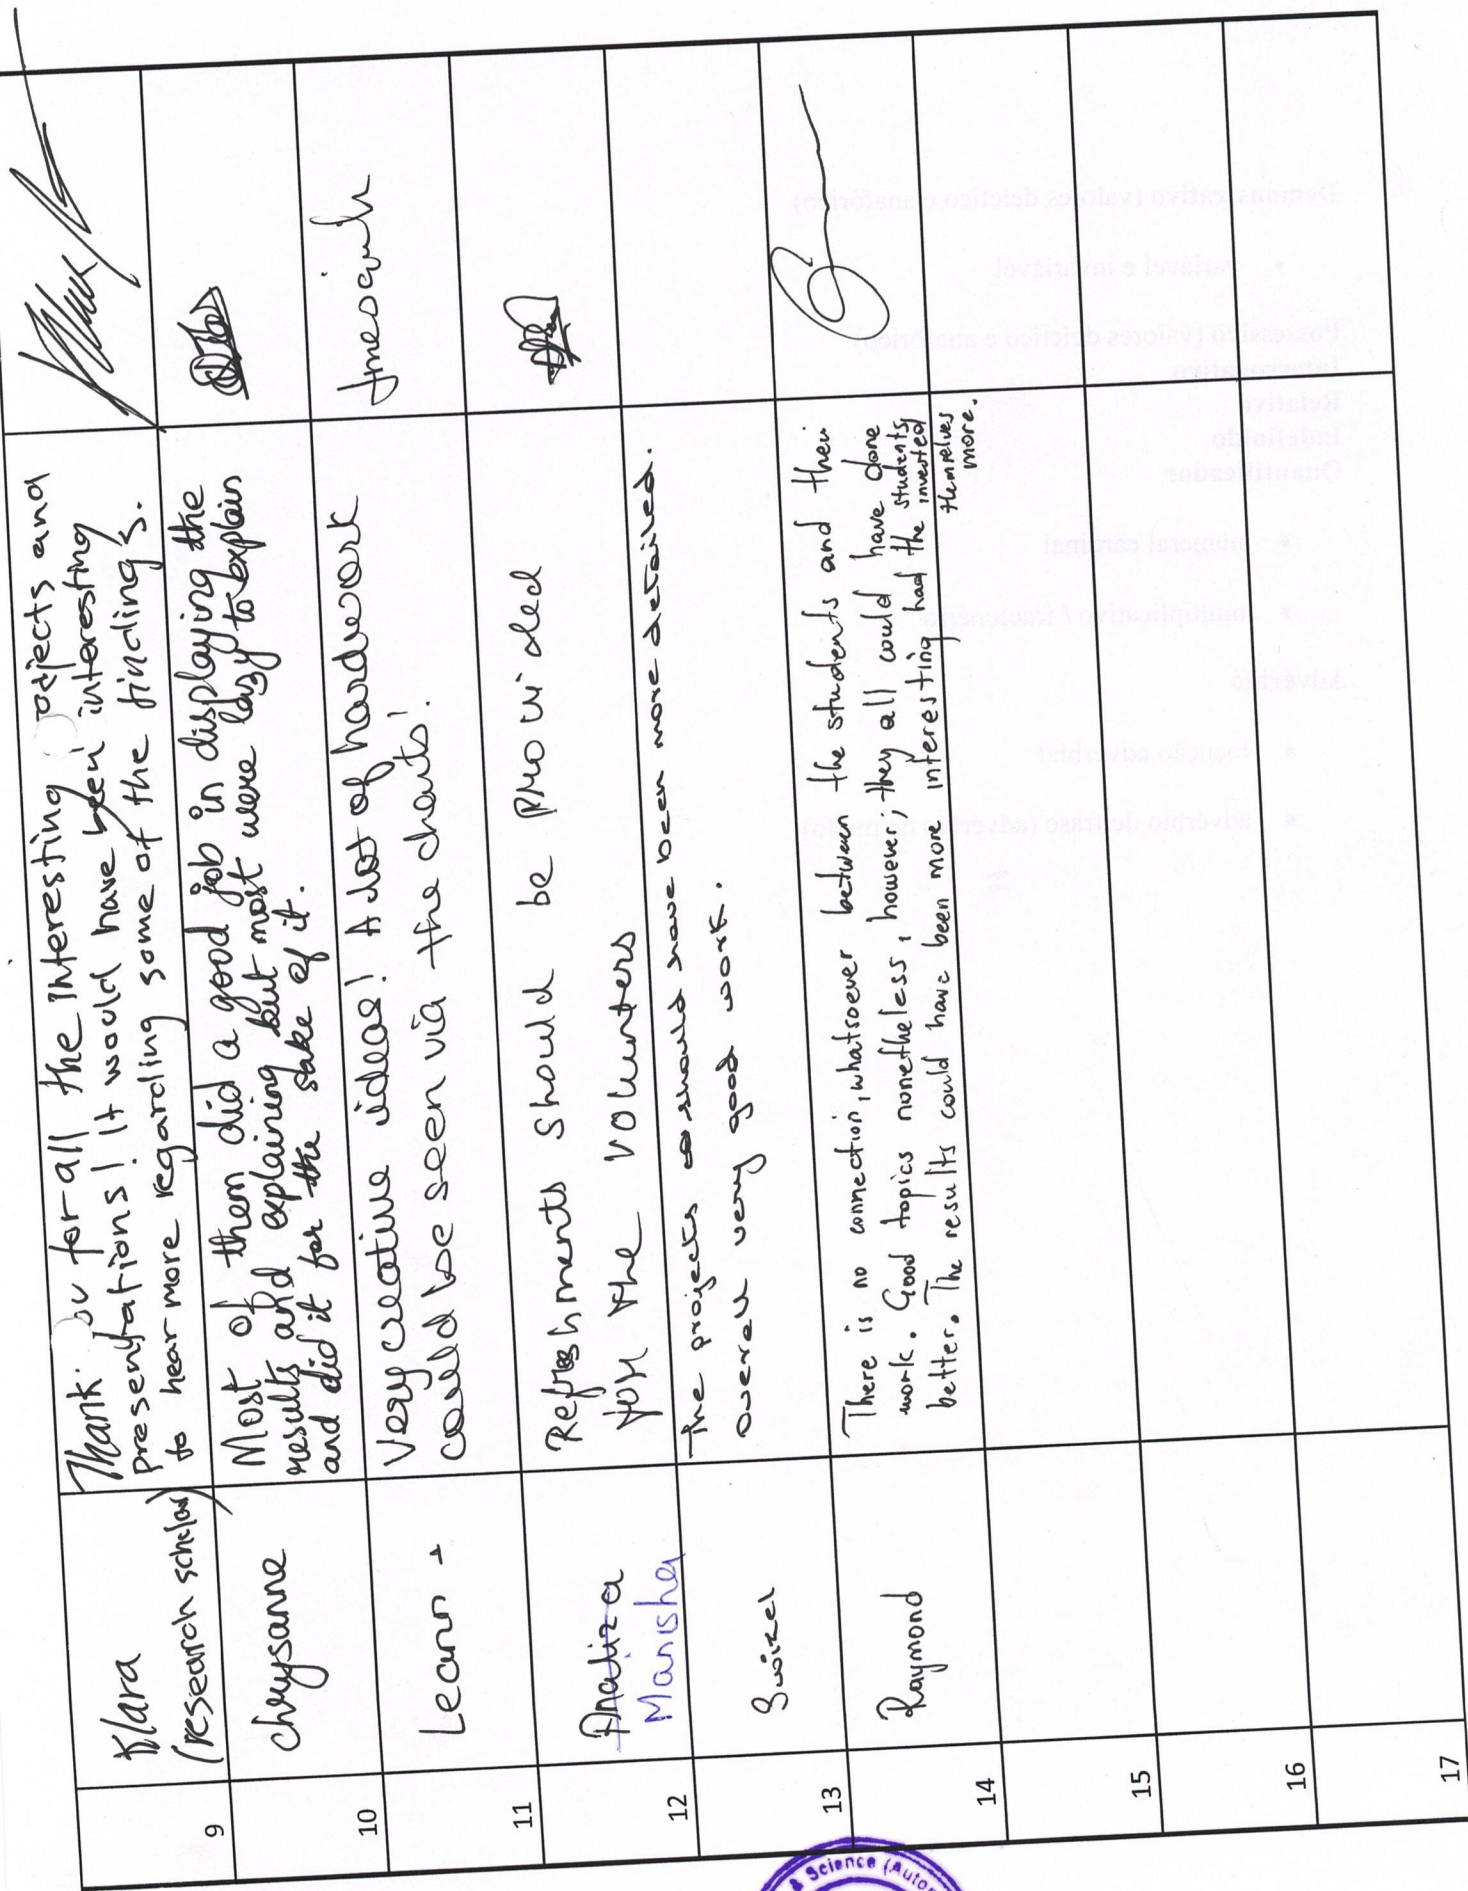 9
Klara
(research scholar)
Thank ou for all the Interesting ojects and
presentations! It would have been interesting
to hear more regarding some of the findings.
10
Chrysanne
Most of them did a good job in displaying the
results and explaining but most were lazy to explain
and did it for the sake of it.
11
Leann
Very creative ideas! A lot of hardwork
could be seen via the charts!
12
Manisha
Refreshments should be provided
for the volunters
13
The projects should have been more detailed.
overall very good work.
14
Raymond
There is no connection, whatsoever between the students and their
work. Good topics nonetheless, however, they all could have done
better. The results could have been more interesting had the students
invested
themselves
more.
15
16
17
& Science (Auto